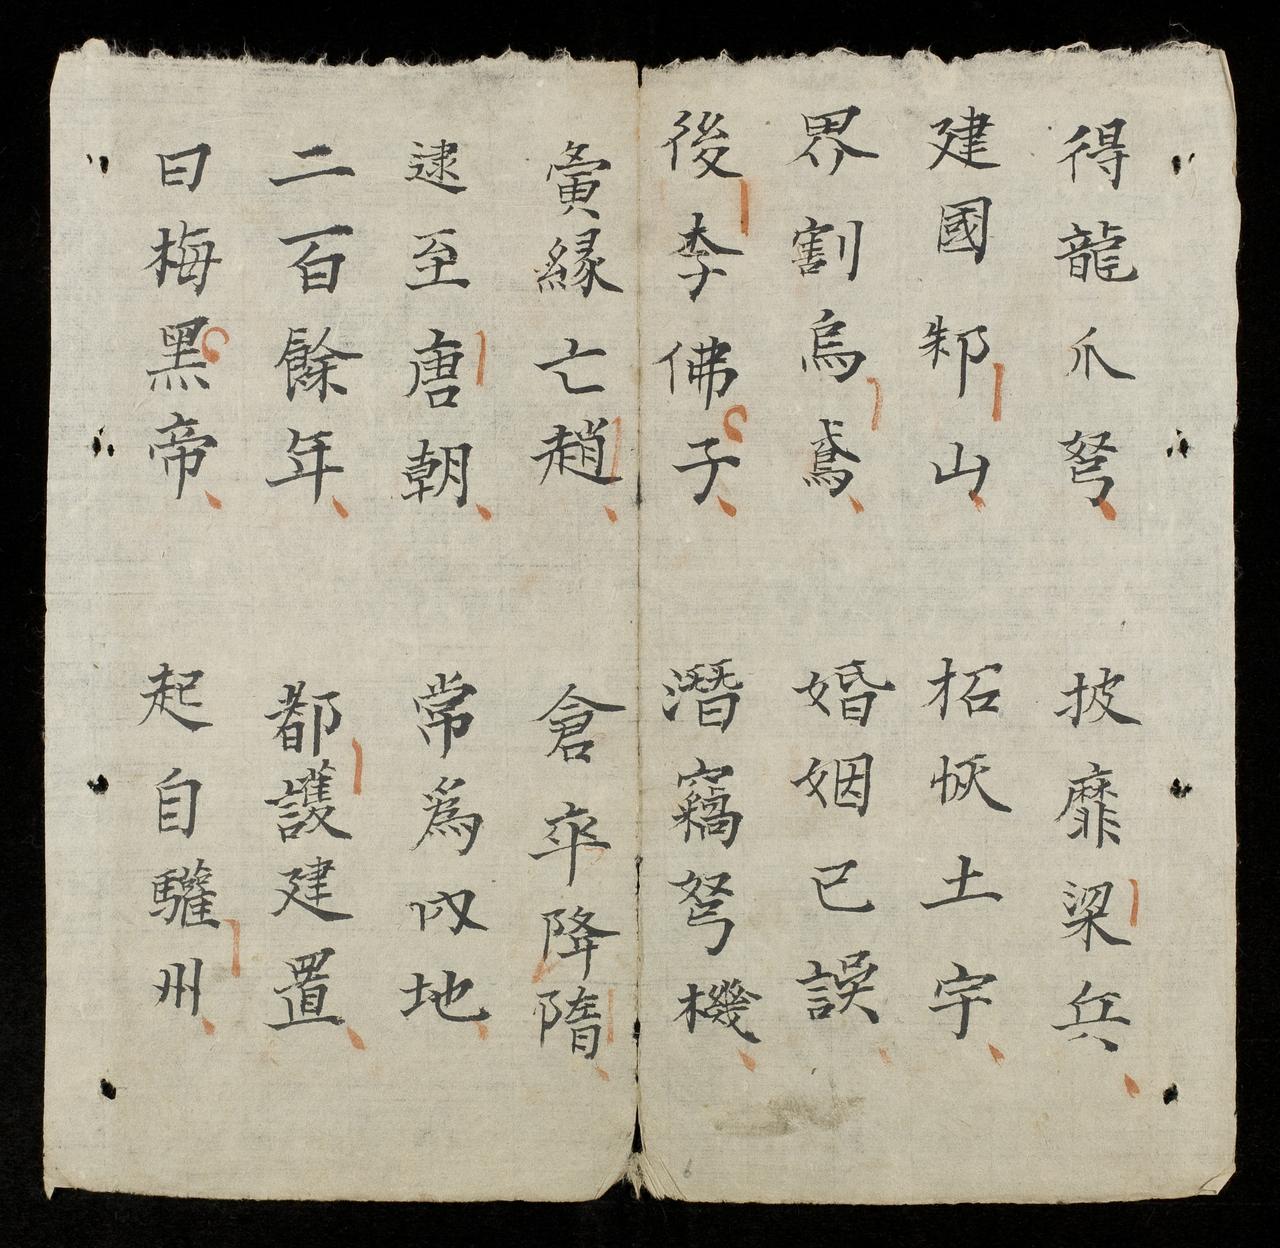 得龍爪弩 披靡梁兵
建國邾山 柘恢土宇
界割烏鳶 婚姻已誤
後李佛子 潛竊弩機
夤緣亡趙 倉卒降隋
逮至唐朝 常為內地
二百餘年 都護建置
曰梅黑帝 起自驩州